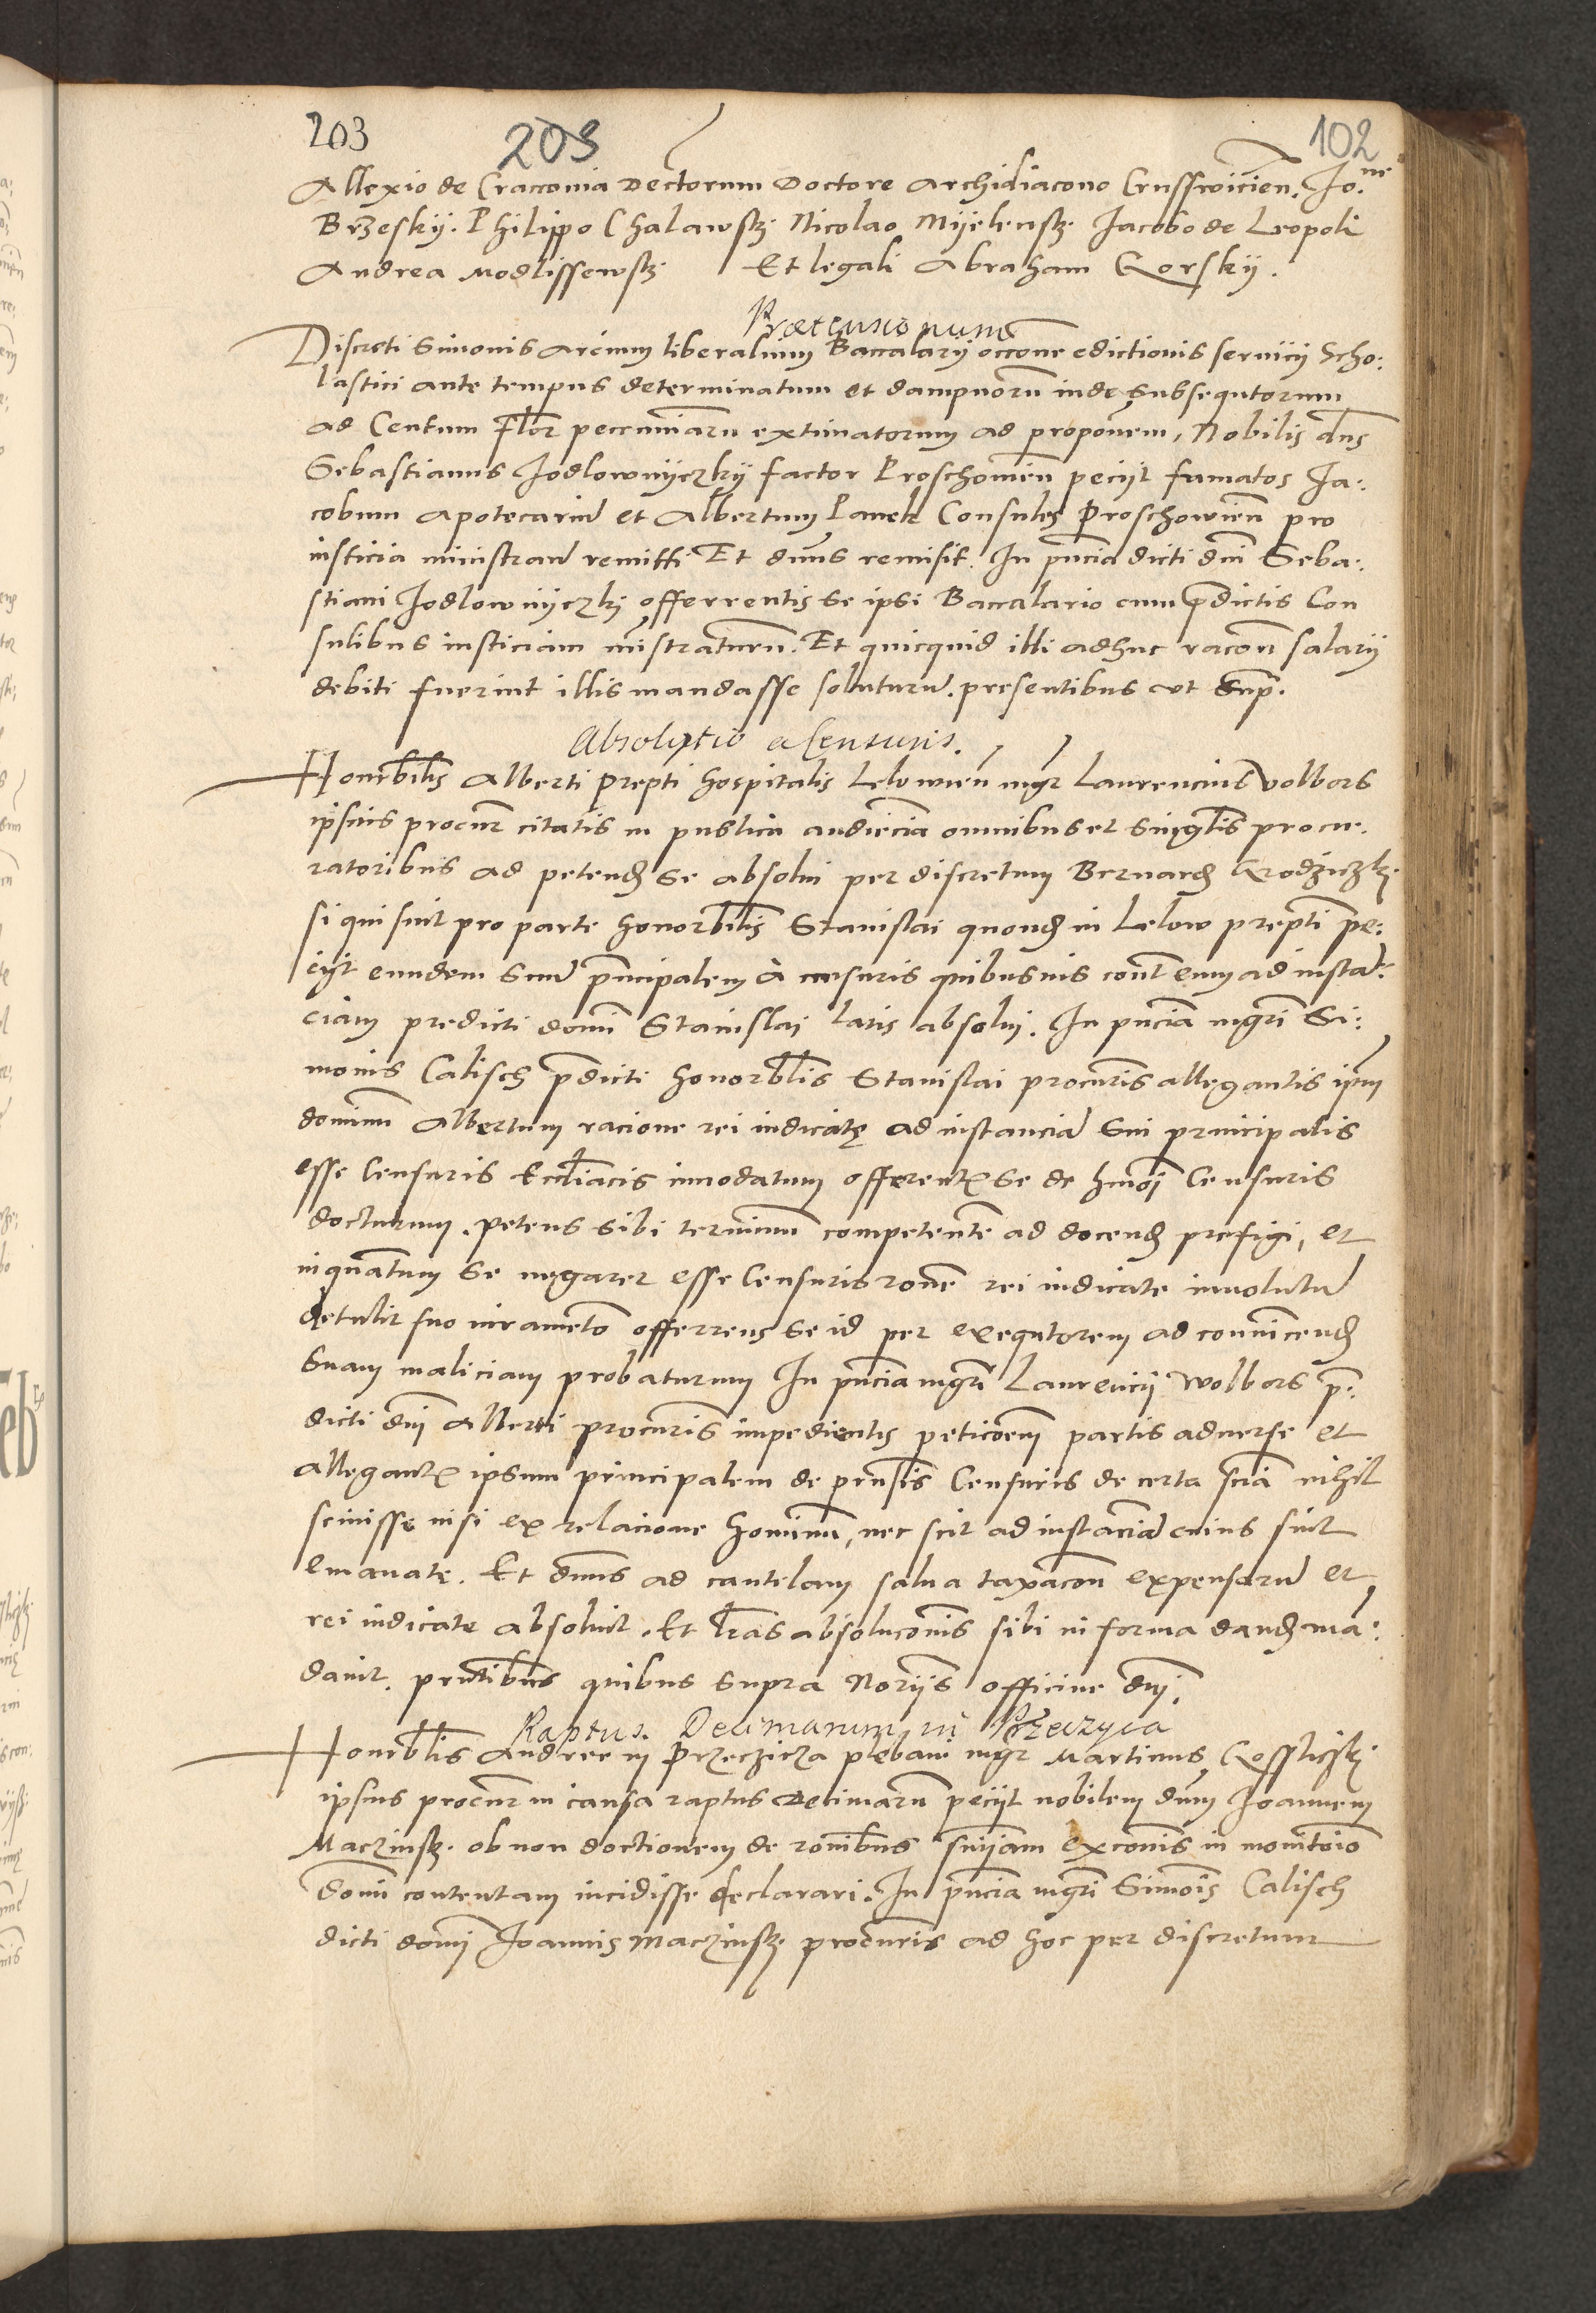 203 203 102
Allexio de Cracovia Decretorum Doctore Archidiacono Crusswicien. Jo.ne
Brzeskij. Philippo Chalawsky. Nicolao Mijelensky. Jacobo de Leopoli
Andrea Modlissewsky Et legali Abraham Gorskij.
Praetensionum
Discreti Simonis arcium liberalium Baccalarij occone edictionis servicij Scho:
lastici ante tempus determinatum et dampnoru inde subsequtorum
ad Centum Flor pecuniaru extimatorum ad proponem, Nobilis dns
Sebastianus Jodlownijczkij factor Proschovien pecijt famatos Ja:
cobum Apotecariu et Albertum Panek Consules Proschowien pro
iusticia ministrand remitti Et dnus remisit. In pncia dicti dni Seba:
stiani Jodlownijczkj offerrentis se ipsi Baccalario cum pdictis Con
sulibus iusticiam mistraturu. Et quicquid illi adhuc racon salarij
debiti fuerint illis mandasse soluturu. presentibus vt supr.
Absolutio a Censuris.
Honorbilis Alberti prepti hospitalis Lelowien mgr Laurencius Volbors
ipsius procur citatis in publica audiencia omnibus et singlis procu:
ratoribus ad petend se absolui per discretum Bernard Grodziczky.
si qui sint pro parte honorbilis Stanislai quond in Lelow prepti pe:
cijt eundem suu pncipalem à censuris quibusuis cont eum ad insta:
ciam predicti domi Stanislaj latis absoluj. In pncia mgri Si:
monis Calisch pdicti honorblis Stanislai procuris allegantis ipm
dominu Albertum racione rei iudicatę ad instancia sui principalis
esse Censuris Eccliacis innodatum offerent se de hmoi Censuris
docturum. petens sibi terminu competente ad docend prefigi, et
inquantum se negaret esse Censuris rone rei iudicate inuolutu
detulit suo iurameto offerrens se id per exequtorem ad conuincend
suam maliciam probaturum In pncia mgri Laurencij Wolbors p:
dicti dnj Alberti procuris impedientis peticoem partis aduerse et
allegant ipsum principalem de prnsis Censuris de certa scia nihil
sciuisse nisi ex relacione hominu, nec scit ad instacia cuius sint
emanate. Et dnus ad cautelam salua taxacon expensaru et
rei iudicate absoluit. Et lras absoluconis sibi in forma dand ma:
dauit. prntibus quibus supra Norijs officine dnj.
Raptus Decimarum in Przeczyca
Honorblis Andree in Przeczicza plebani mgr Martinus Gosslicky.
ipsius procur in causa raptus decimaru pecijt nobilem dnm Joannem
Maczinsky. ob non doctionem de ronibus snijam excoms in monitoio
domi contentam incidisse declarari. In pncia mgri Simois Calisch
dicti domj Joannis Maczinsky. procuris ad hoc per discretum